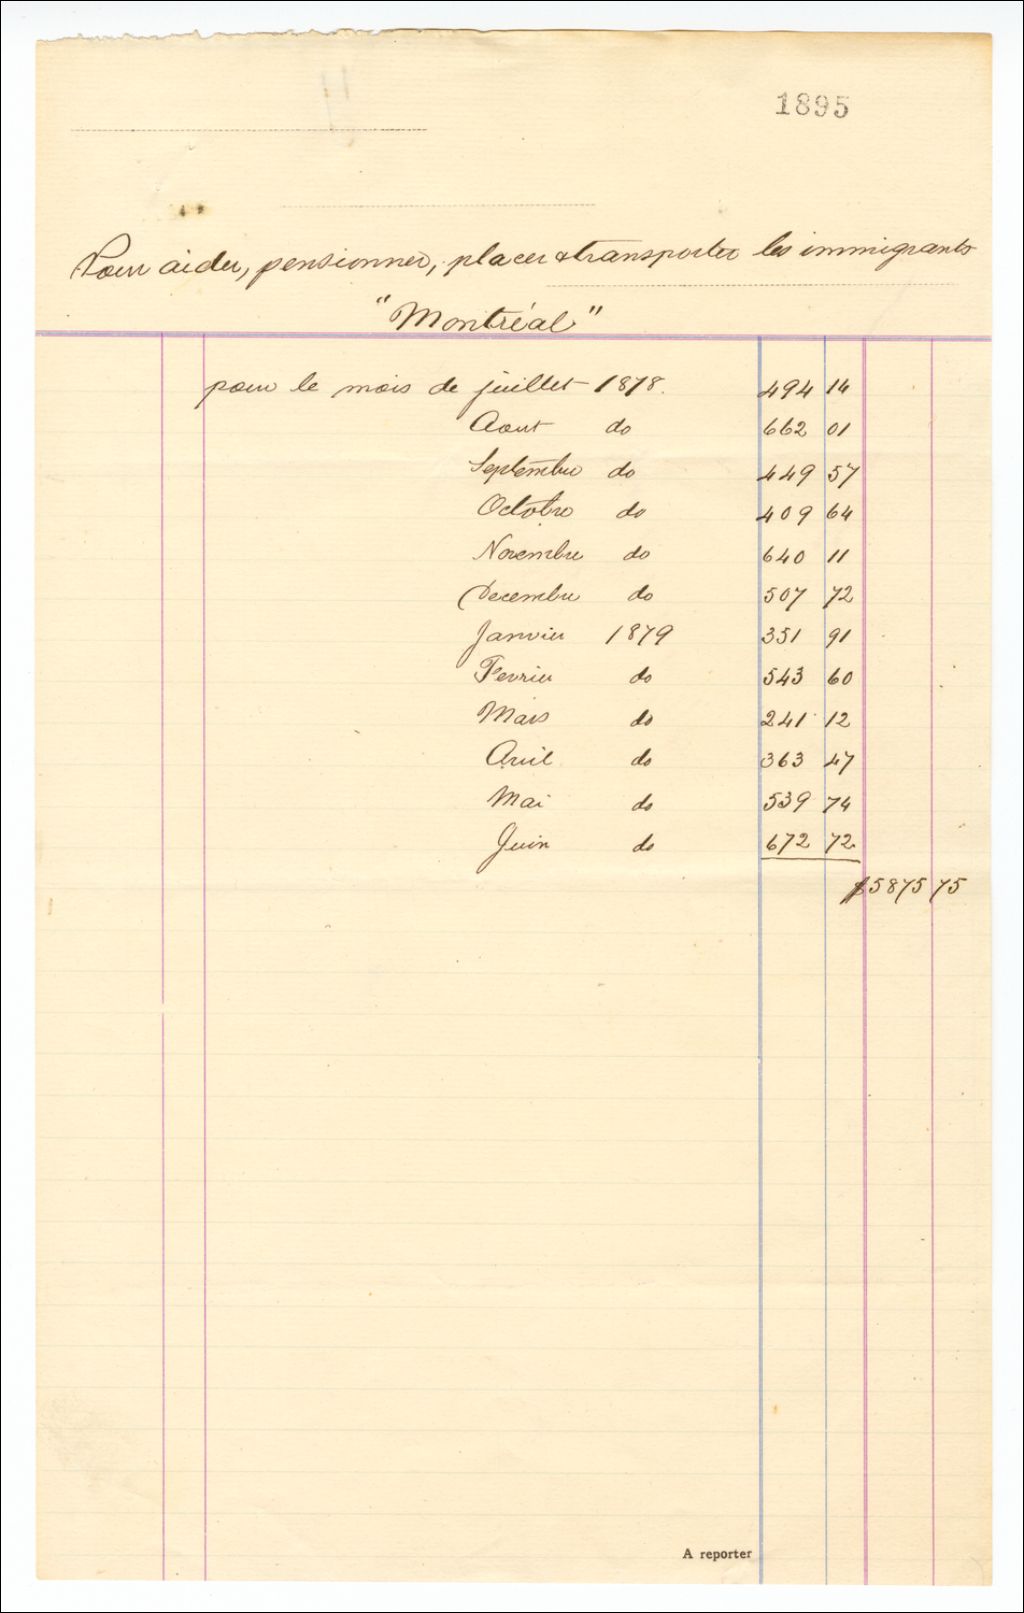 1895
Pour aider, pensionner, placer & transporter les immigrants
"Montréal"
pour le mois de juillet 1878. 494 14
Aout do 662 01
Septembre do 449 57
Octobre do 409 64
Novembre do 640 11
Decembre do 507 72
Janvier 1879 351 91
Fevrier do 543 60
Mars do 241 12
Avril do 363 47
Mai do 539 74
Juin do 672 72
$5875 75
A reporter